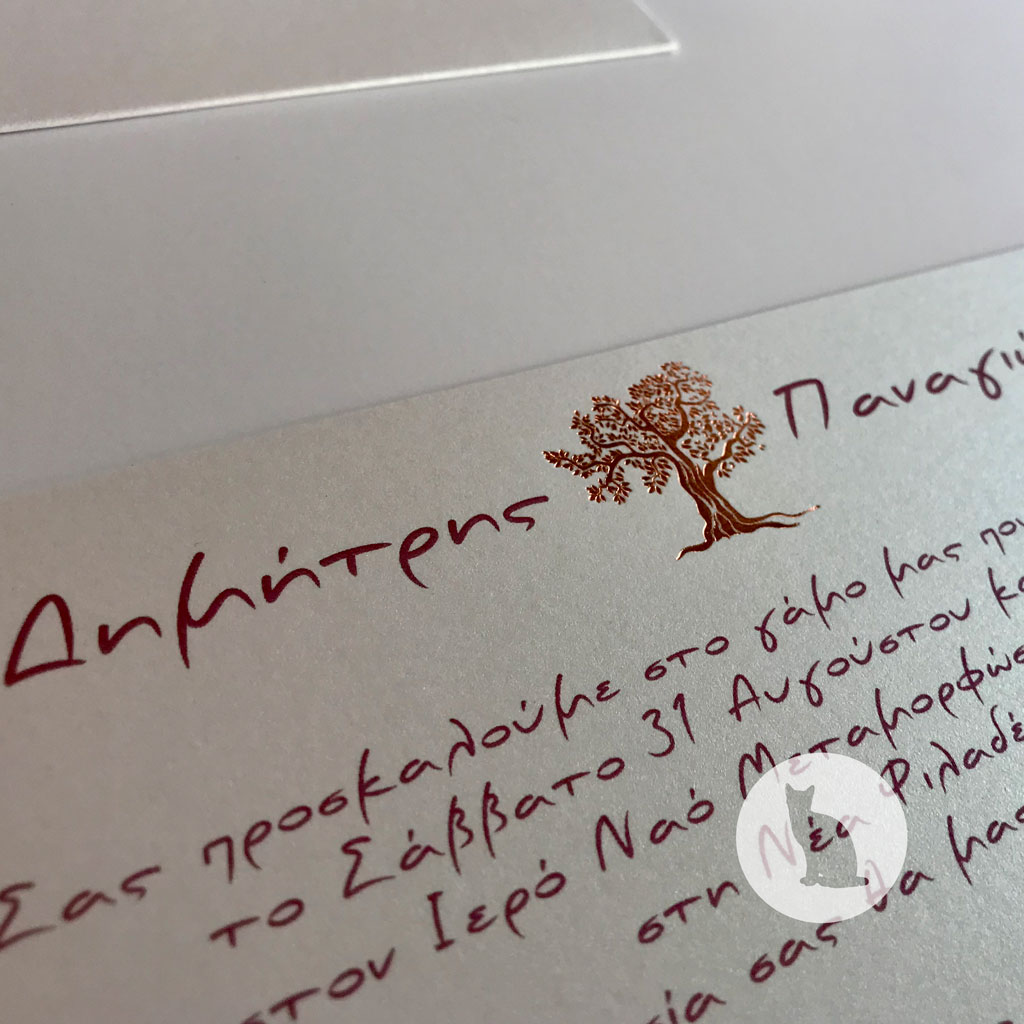 Δημήτρης Παναγιώ
Σας προσκαλούμε στο γάμο μας που
το Σάββατο 31 Αυγούστου κα
στον Ιερό Ναό Μεταμορφώσ
στη Νέα Φιλαδέ
σας θα μας